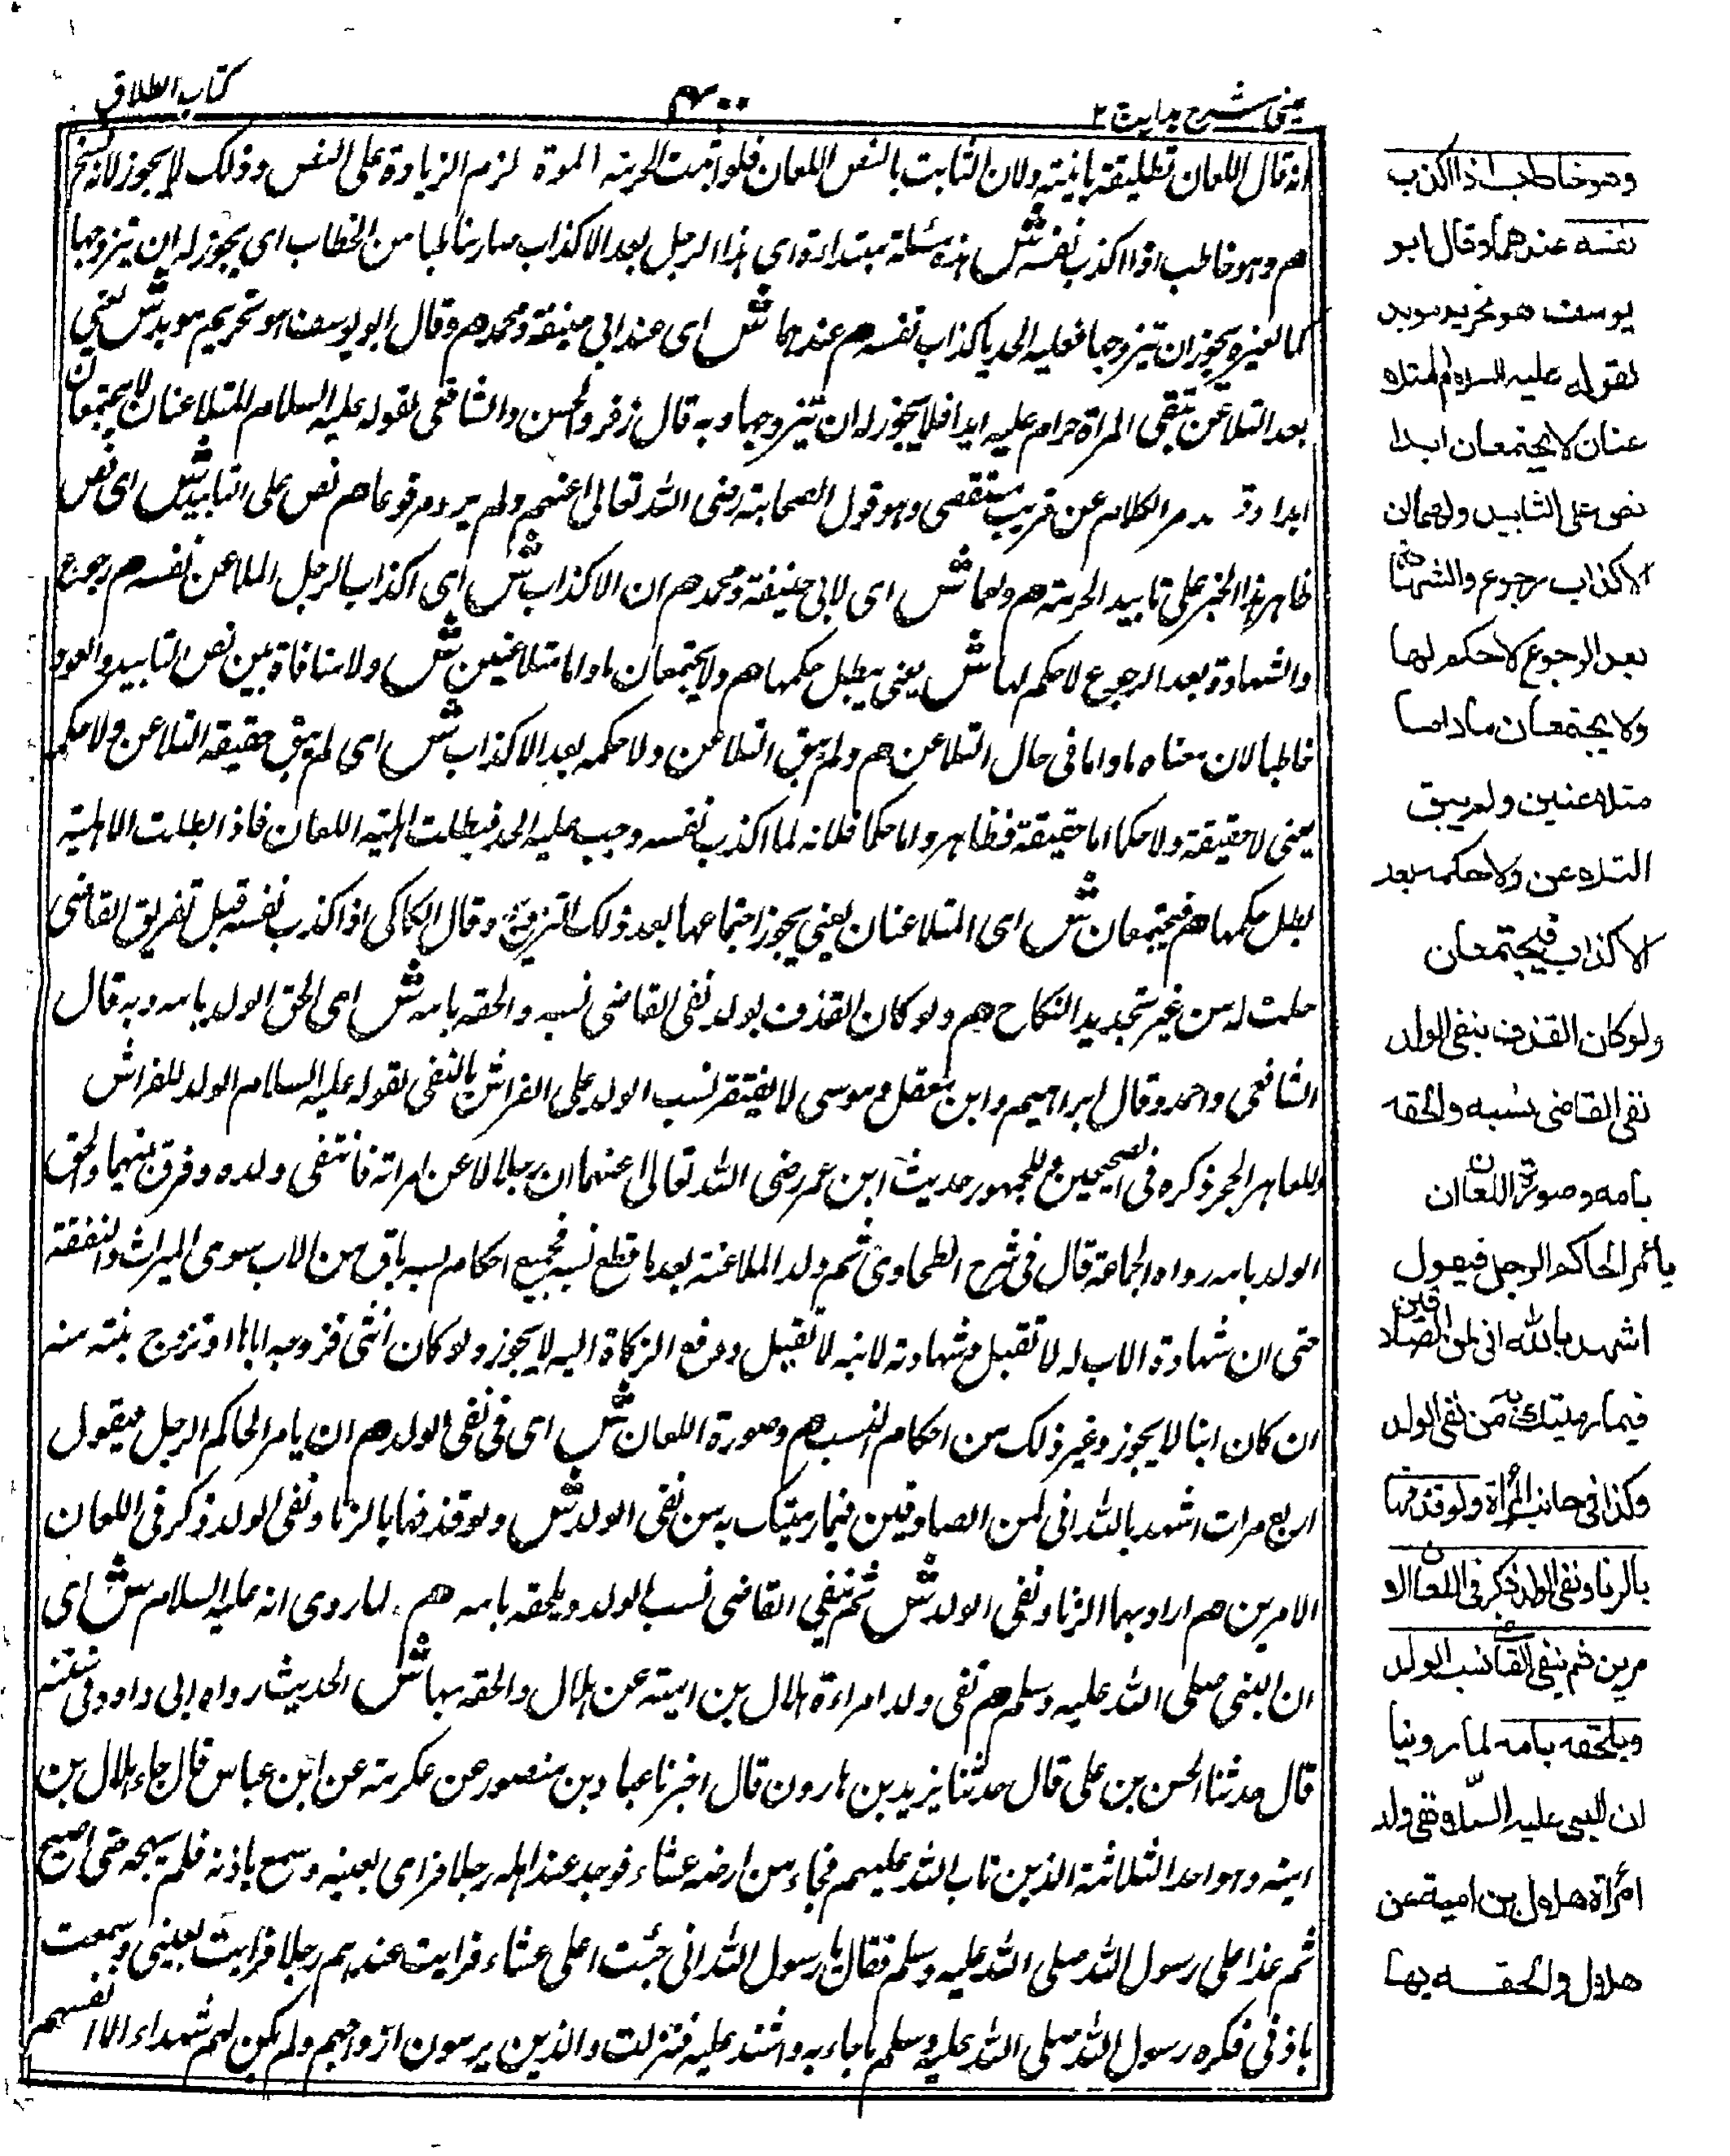 عینی شرح ہدایہ ج ۲
۴۰۰
کتاب الطلاق
انه قال اللعان تطليقة بائنة ولان الثابت بالنص اللعان فلو اثبت الحرمة المؤبدة لزم الزيادة على النص وذلك لا يجوز لانه نسخ
هم وهو خاطب اذا اكذب نفسه ش هذه مسئلة مبتدأة اى هذا الرجل بعد الاكذاب صار خاطبا من الخطاب اى يجوز له ان يتزوجها
كما لغيره يجوز ان يتزوجها فعليه الحد باكذاب نفسه هم عندهما ش اى عند ابى حنيفة ومحمد هم وقال ابو يوسف هو تحريم موبد ش يعنى
بعد التلاعن تبقى المرأة حرام عليه ابدا فلا يجوز له ان يتزوجها وبه قال زفر والحسن والشافعى لقوله عليه السلام المتلاعنان لا يجتمعان
ابدا وقد مر الكلام عن قريب مستقصى وهو قول الصحابة رضى الله تعالى عنهم ولم يرد مرفوعا هم نص على التابيد ش اى نص
ظاهر هذا الخبر على تابيد الحرمة هم ولهما ش اى لابى حنيفة ومحمد هم ان الاكذاب ش اى اكذاب الرجل الملاعن نفسه هم رجوع
والشهادة بعد الرجوع لا حكم لها ش يعنى يبطل حكمها هم ولا يجتمعان ما داما متلاعنين ش ولا منافاة بين نص التابيد والعود
خاطبا لان معناه ما داما فى حال التلاعن هم ولم يبق التلاعن ولا حكمه بعد الاكذاب ش اى لم يبق حقيقة التلاعن ولا حكمه
يعنى لا حقيقة ولا حكما اما حقيقة فظاهر واما حكما فلانه لما اكذب نفسه وجب عليه الحد فبطلت اهلية اللعان فاذا بطلت الاهلية
بطل حكمها هم فيجتمعان ش اى المتلاعنان يعنى يجوز اجتماعهما بعد ذلك بالتزويج وقال الكاكى اذا اكذب نفسه قبل تفريق القاضى
حلت له من غير تجديد النكاح هم ولو كان القذف بولد نفى القاضى نسبه والحقه بامه ش اى الحق الولد بامه وبه قال
الشافعى واحمد وقال ابراهيم وابن معقل وموسى لا يفتقر نسب الولد على الفراش بالنفى لقوله عليه السلام الولد للفراش
وللعاهر الحجر ذكره فى الصحيحين وللجمهور حديث ابن عمر رضى الله تعالى عنهما ان رجلا لاعن امراته فانتفى ولده وفرق بينهما والحق
الولد بامه رواه الجماعة قال فى شرح الطحاوى ثم ولد الملاعنة بعد ما قطع نسبه فجميع احكام نسبه باق من الاب سوى الميراث والنفقة
حتى ان شهادة الاب له لا تقبل وشهادته لابيه لا تقبل ودفع الزكاة اليه لا يجوز ولو كان انثى فزوجه اباها او تزوج بنته منه
ان كان ابنا لا يجوز وغير ذلك من احكام النسب هم وصورة اللعان ش اى فى نفى الولد هم ان يامر الحاكم الرجل فيقول
اربع مرات اشهد بالله انى لمن الصادقين فيما رميتك به من نفى الولد ش ولو قذفها بالزنا ونفى الولد ذكر فى اللعان
الامرين هم اراد بهما الزنا ونفى الولد ش ثم ينفى القاضى نسب الولد ويلحقه بامه هم لما روى انه عليه السلام ش اى
ان النبى صلى الله عليه وسلم هم نفى ولد امراءة هلال بن امية عن هلال والحقه بها ش الحديث رواه ابى داود فى سننه
قال حدثنا الحسن بن على قال حدثنا يزيد بن هارون قال اخبرنا عباد بن منصور عن عكرمة عن ابن عباس قال جاء هلال بن
امية وهو احد الثلاثة الذين تاب الله عليهم فجاء من ارضه عشاء فوجد عند اهله رجلا فراى بعينه وسمع باذنه فلم يهجه حتى اصبح
ثم غدا على رسول الله صلى الله عليه وسلم فقال يا رسول الله انى جئت اهلى عشاء فرايت عندهم رجلا فرايت بعينى وسمعت
باذنى فكره رسول الله صلى الله عليه وسلم ما جاء به واشتد عليه فنزلت والذين يرمون ازواجهم ولم يكن لهم شهداء الا انفسهم
وهو خاطب اذا اكذب
نفسه عندهما وقال ابو
يوسف هو تحريم موبد
لقوله عليه السلام المتلا
عنان لا يجتمعان ابدا
نص على التابيد ولهما ان
الاكذاب رجوع والشهادة
بعد الرجوع لا حكم لها
ولا يجتمعان ما داما
متلاعنين ولم يبق
التلاعن ولا حكمه بعد
الاكذاب فيجتمعان
ولو كان القذف بنفى الولد
نفى القاضى نسبه والحقه
بامه وصورة اللعان ان
يأمر الحاكم الرجل فيقول
اشهد بالله انى لمن الصادقين
فيما رميتك به من نفى الولد
وكذا فى جانب المرأة ولو قذفها
بالزنا ونفى الولد ذكر فى اللعان الا
مرين ثم ينفى القاضى نسب الولد
ويلحقه بامه لما روينا
ان النبى عليه السلام نفى ولد
امرأة هلال بن امية عن
هلال والحقه بها